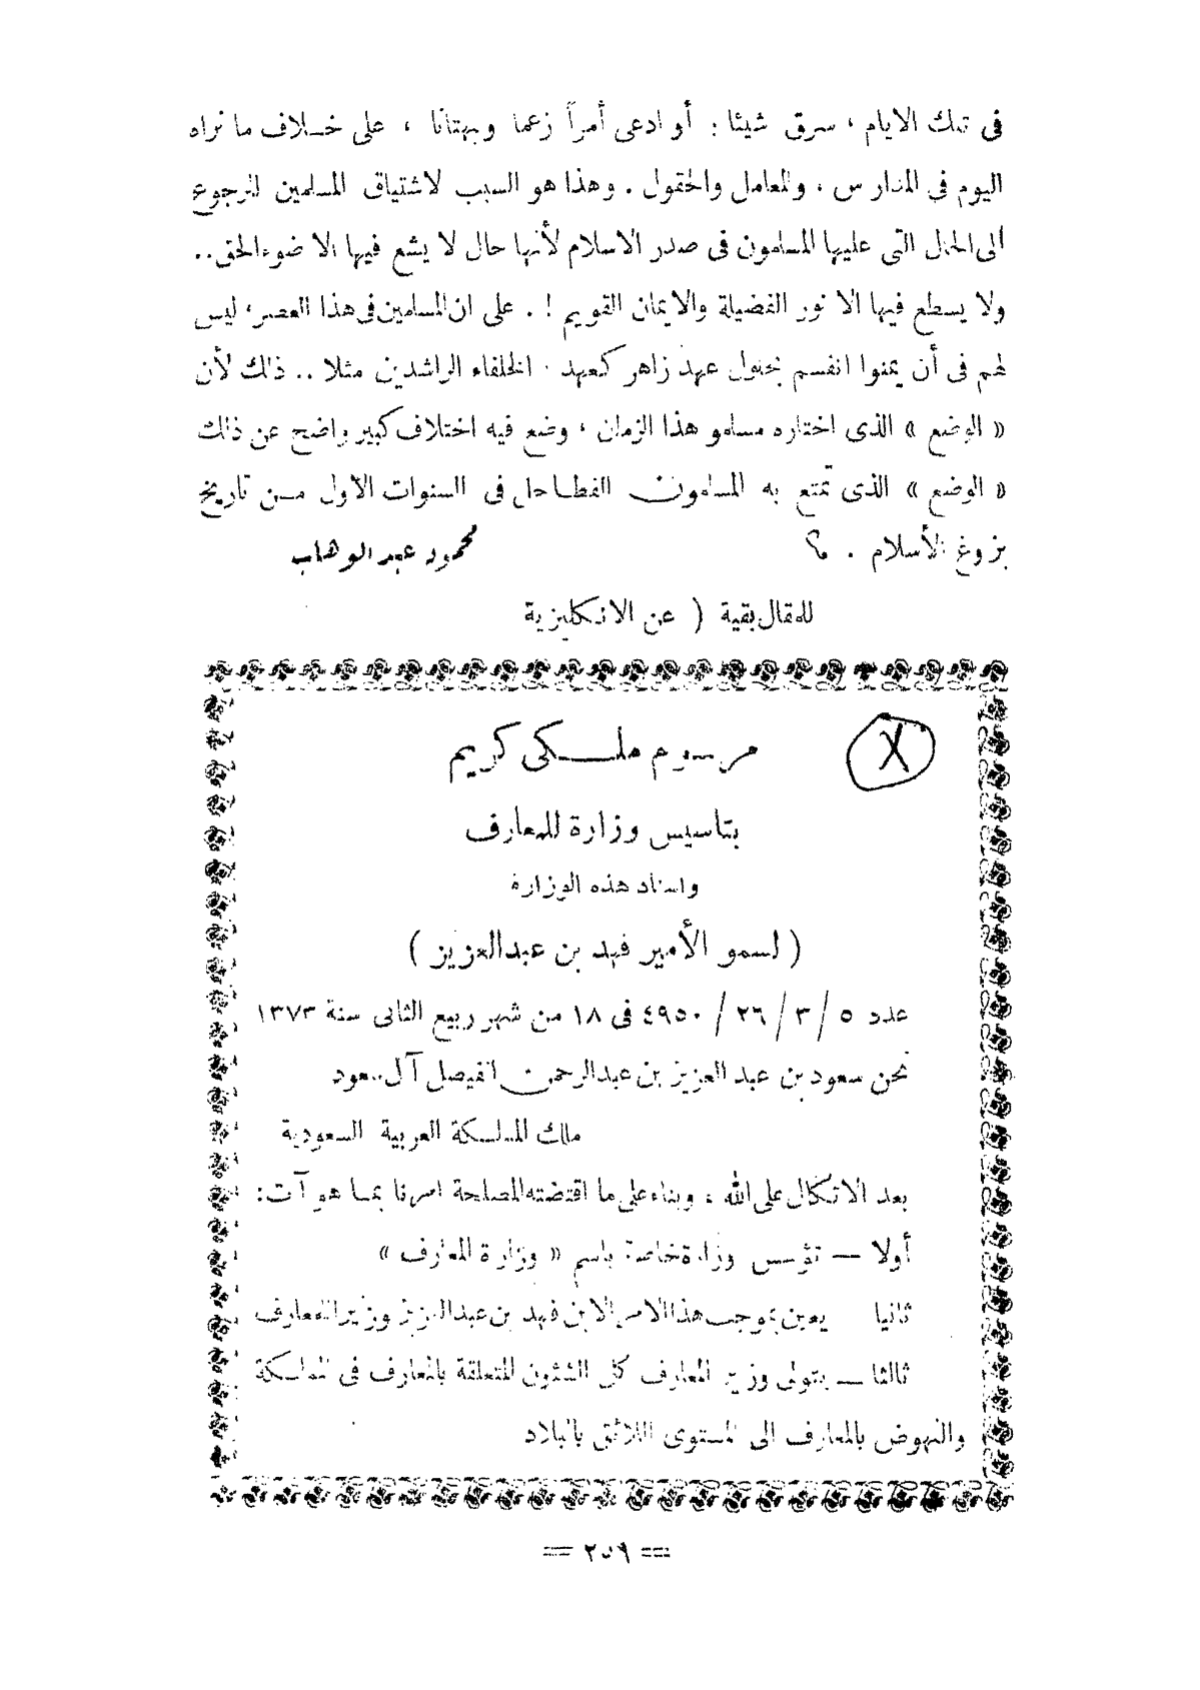 فى تلك الايام ، سرق شيئا : أو ادعى أمراً زعما وبهتانا ، على خلاف ما نراه
اليوم فى المدارس ، والمعامل والحقول . وهذا هو السبب لاشتياق المسلمين للرجوع
الى الحال التى عليها المسلمون فى صدر الاسلام لأنها حال لا يشع فيها الا ضوء الحق..
ولا يسطع فيها الا نور الفضيلة والايمان القويم ! . على ان المسلمين فى هذا العصر، ليس
لهم فى أن يمنوا انفسم بحلول عهد زاهر كعهد الخلفاء الراشدين مثلا .. ذلك لأن
« الوضع » الذى اختاره مسلمو هذا الزمان ، وضع فيه اختلاف كبير واضح عن ذلك
« الوضع » الذى تمتع به المسلمون الفطاحل فى السنوات الأول من تاريخ
بزوغ الأسلام . ؟ محمود عبد الوهاب
للمقال بقية ( عن الانكليزية
X
مرسوم ملكى كريم
بتاسيس وزارة للمعارف
واسناد هذه الوزارة
( لسمو الأمير فهد بن عبدالعزيز )
عدد ٥ / ٣ / ٢٦ / ٤٩٥٠ فى ١٨ من شهر ربيع الثانى سنة ١٣٧٣
نحن سعود بن عبد العزيز بن عبدالرحمن الفيصل آل سعود
ملك المملكة العربية السعودية
بعد الاتكال على الله ، وبناء على ما اقتضته المصلحة امرنا بما هو آت :
أولا — تؤسس وزارة خاصة باسم « وزارة المعارف »
ثانيا يعين بموجب هذا الامر الابن فهد بن عبدالعزيز وزيرا للمعارف
ثالثا — يتولى وزير المعارف كل الشئون المتعلقة بالمعارف فى المملكة
والنهوض بالمعارف الى المستوى اللائق بالبلاد
== ٢٥٩ ==